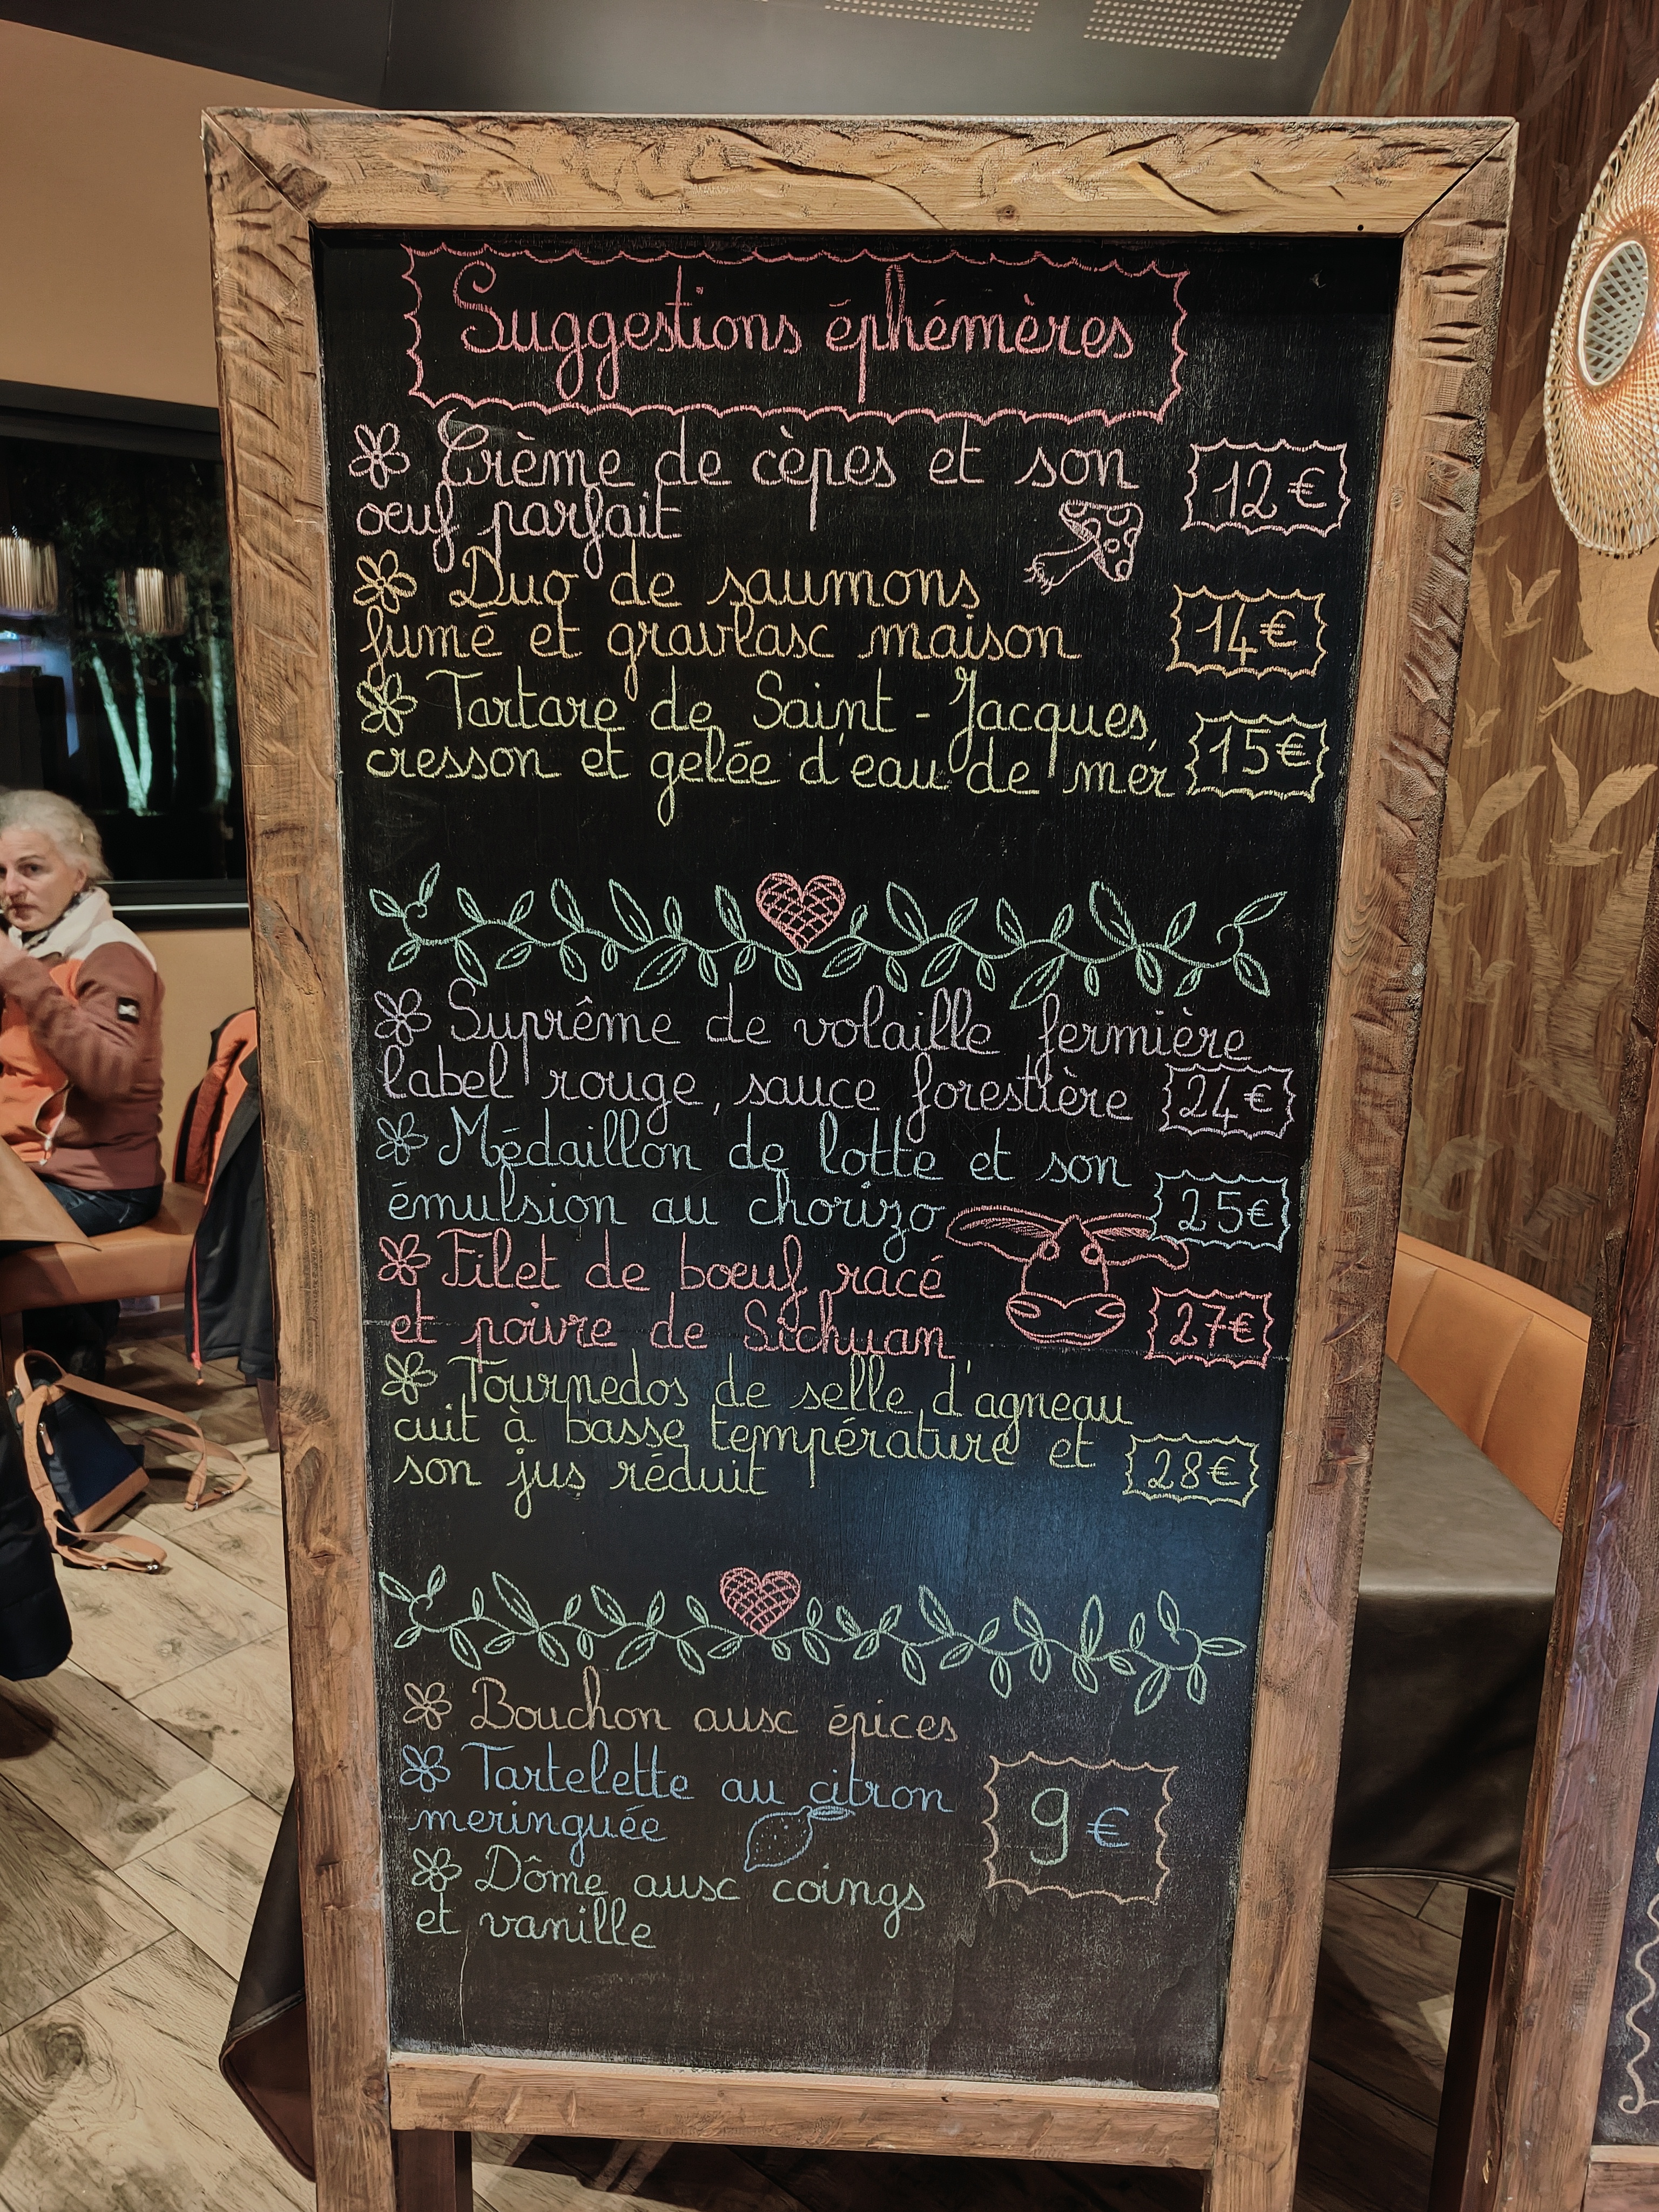 Suggestions éphémères
Crème de cèpes et son
œuf parfait
12€
Duo de saumons
fumé et gravlax maison
14€
Tartare de Saint-Jacques,
cresson et gelée d'eau de mer
15€
Suprême de volaille fermière
label rouge, sauce forestière
24€
Médaillon de lotte et son
émulsion au chorizo
25€
Filet de bœuf racé
et poivre de Sichuan
27€
Tournedos de selle d'agneau
cuit à basse température et
son jus réduit
28€
Bouchon aux épices
Tartelette au citron
meringuée
Dôme aux coings
et vanille
9€